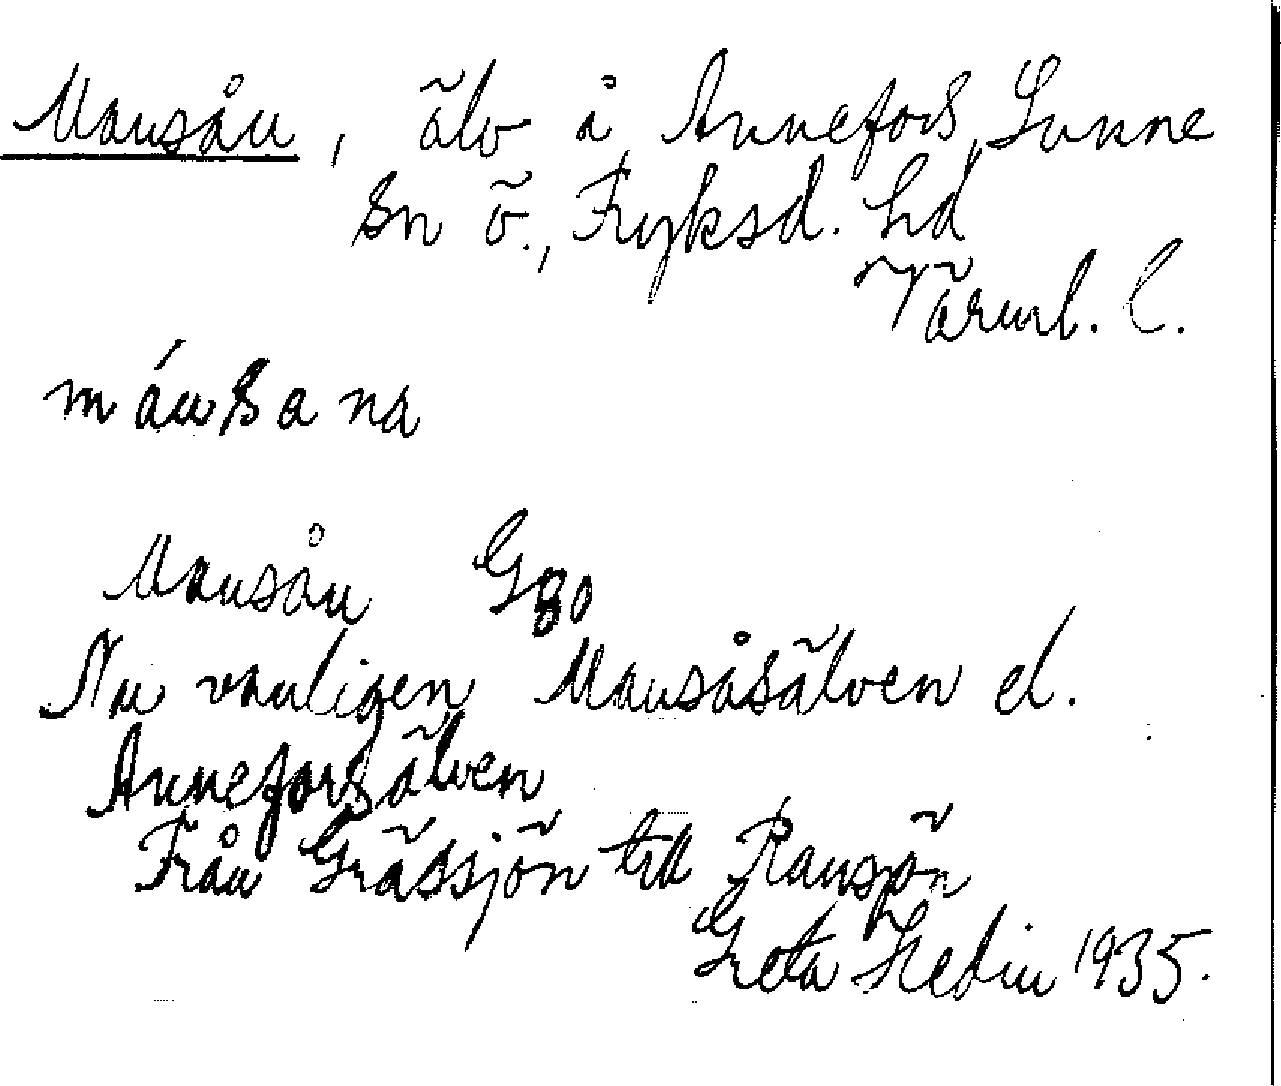 Mansån, älv å Annefors, Sunne
sn ö., Fryksd. hd
Värml. l.
mánsana
Mansån G80
Nu vanligen Mansåsälven el.
Anneforsälven
Från Grässjön till Ransjön
Greta Hedin 1935.